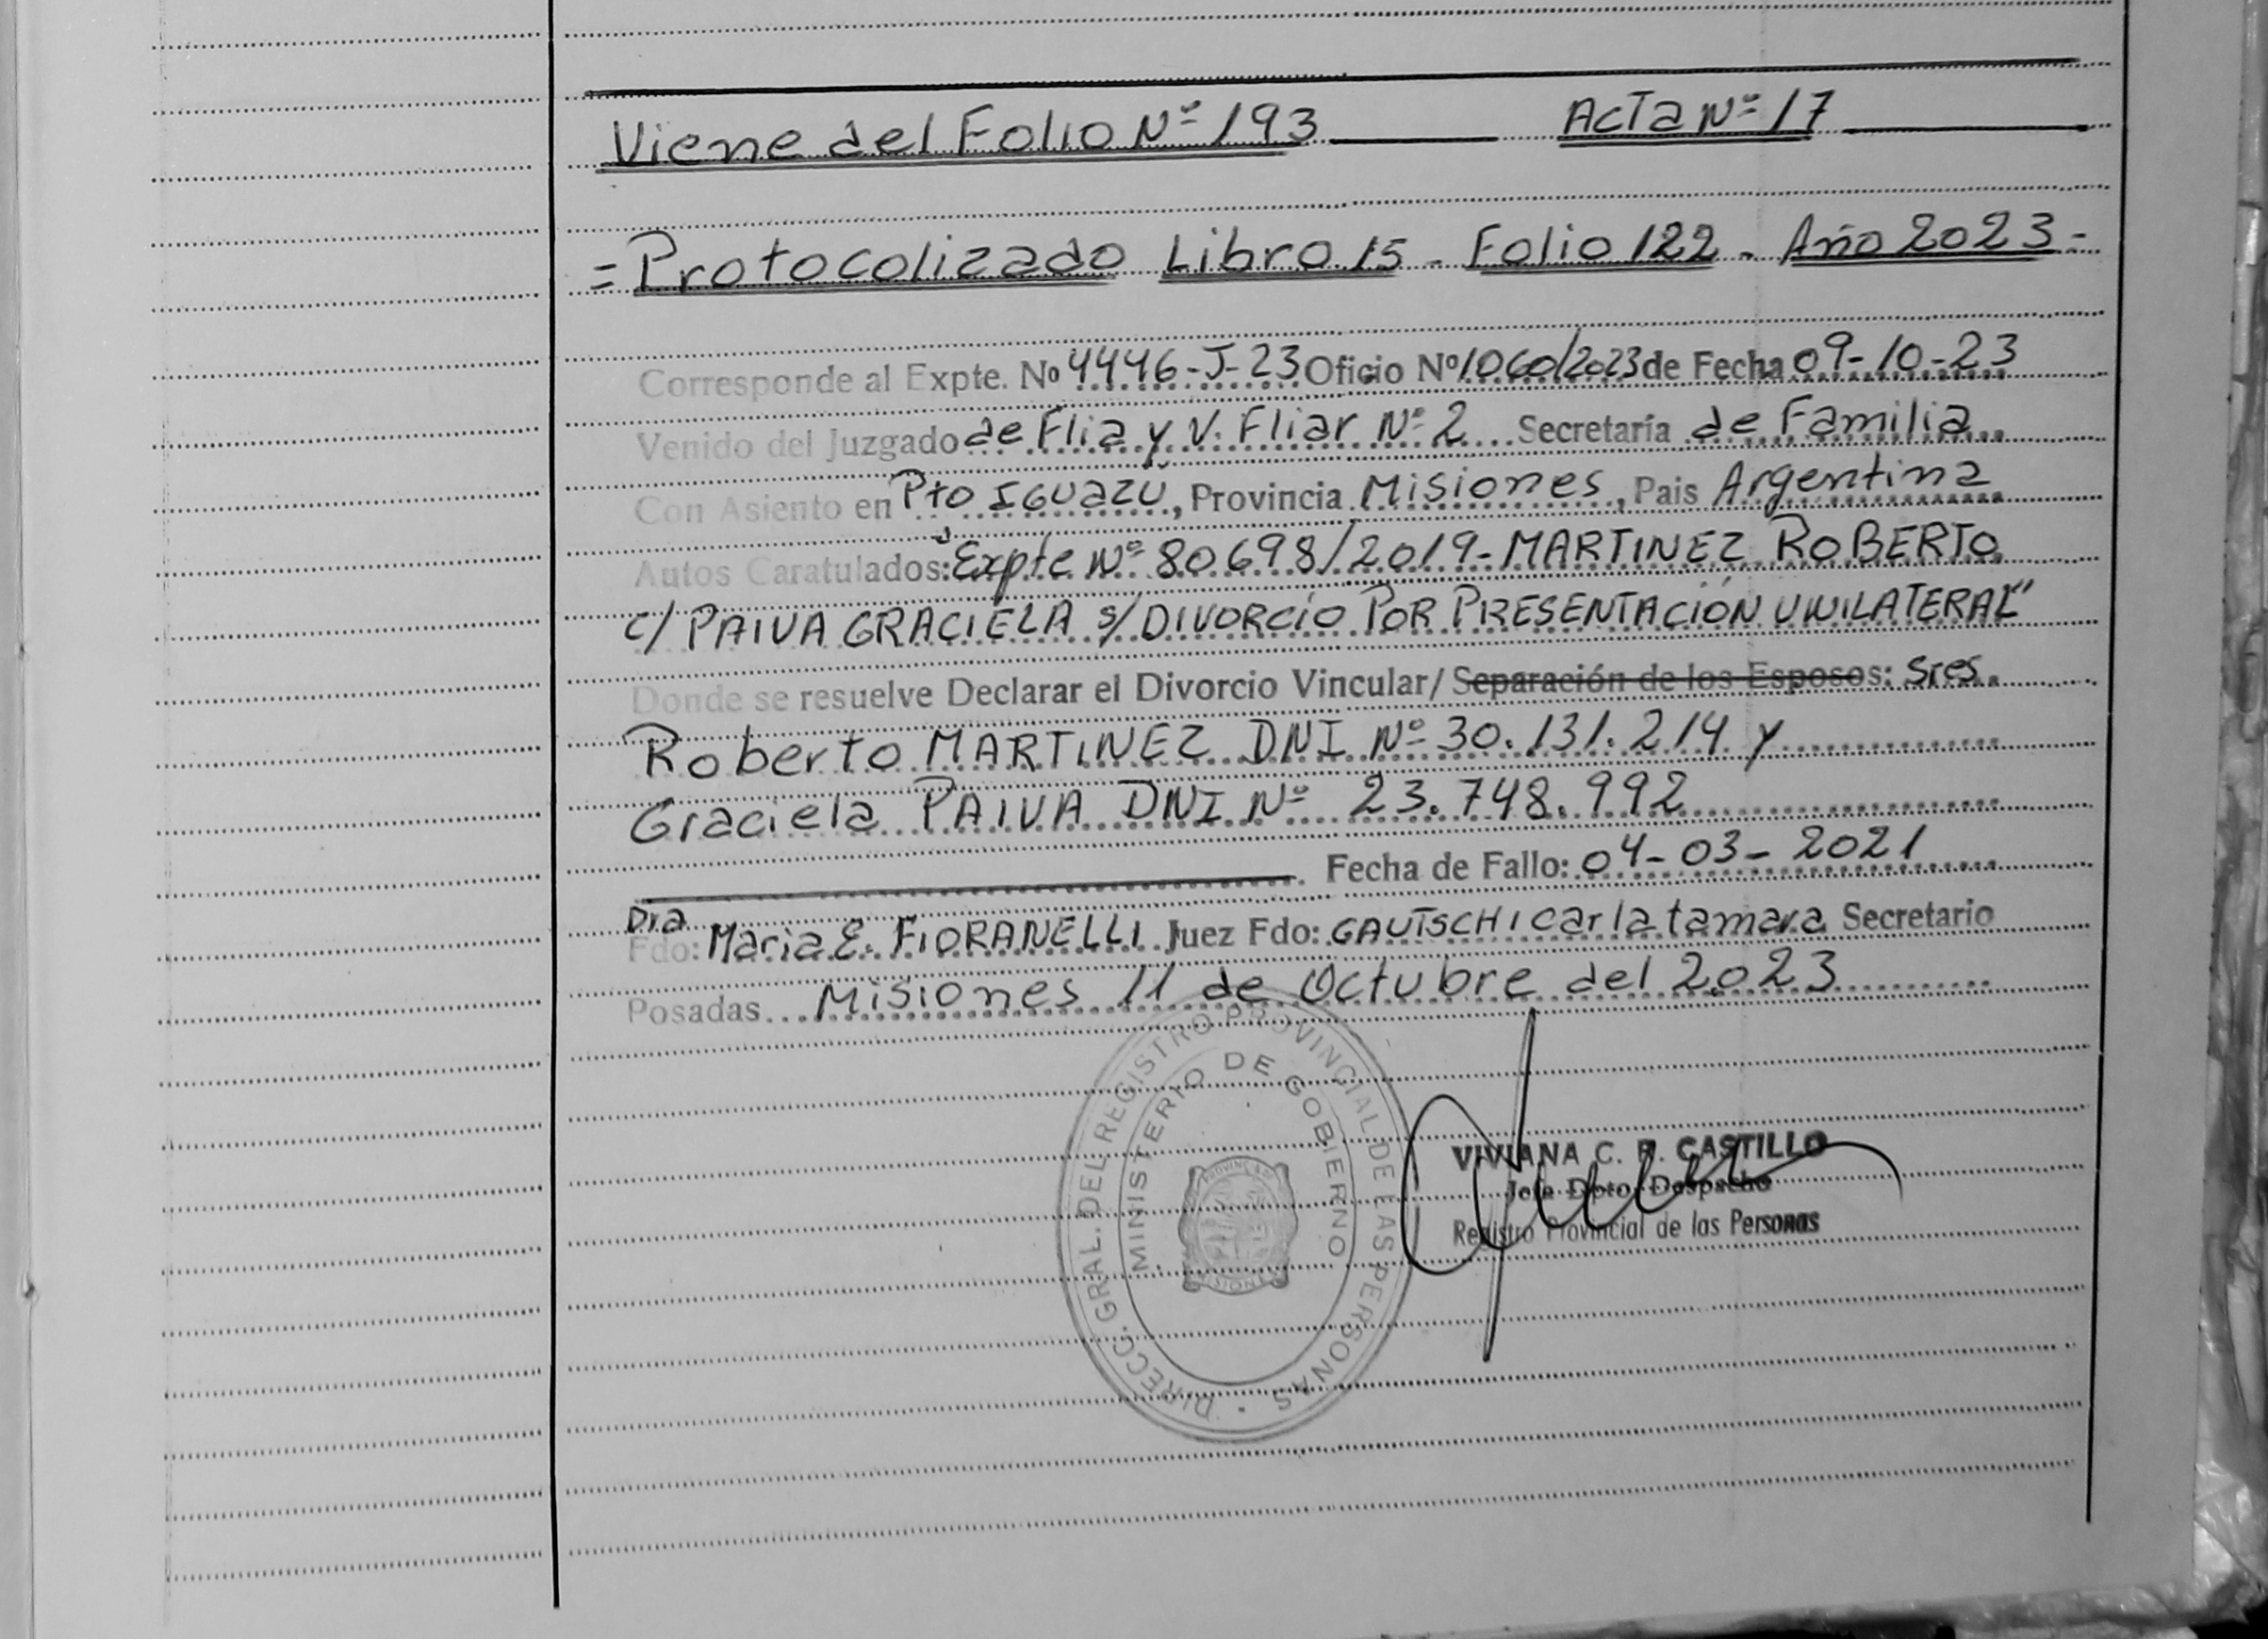 Viene del Folio Nº 193 Acta Nº 17
= Protocolizado Libro 15 - Folio 122 - Año 2023 -
Corresponde al Expte. Nº 4446-J-23 Oficio Nº 1060/2023 de Fecha 09-10-23
Venido del Juzgado de Flia y V. Fliar Nº 2 Secretaría de Familia
Con Asiento en Pto Iguazú, Provincia Misiones, Pais Argentina
Autos Caratulados: Expte Nº 80698/2019- MARTINEZ ROBERTO
c/ PAIVA GRACIELA s/ DIVORCIO POR PRESENTACIÓN UNILATERAL"
Donde se resuelve Declarar el Divorcio Vincular/ Separación de los Esposos: Sres.
Roberto MARTINEZ DNI Nº 30.131.214 y
Graciela PAIVA DNI Nº 23.748.992
Fecha de Fallo: 04-03-2021
Dra
Fdo: Maria E. FIORANELLI Juez Fdo: GAUTSCHI Carla tamara Secretario
Posadas Misiones 11 de Octubre del 2023
DIRECC. GRAL. DEL REGISTRO PROVINCIAL DE LAS PERSONAS
MINISTERIO DE GOBIERNO
VIVIANA C. R. CASTILLO
Jefe Dpto. Despacho
Registro Provincial de las Personas